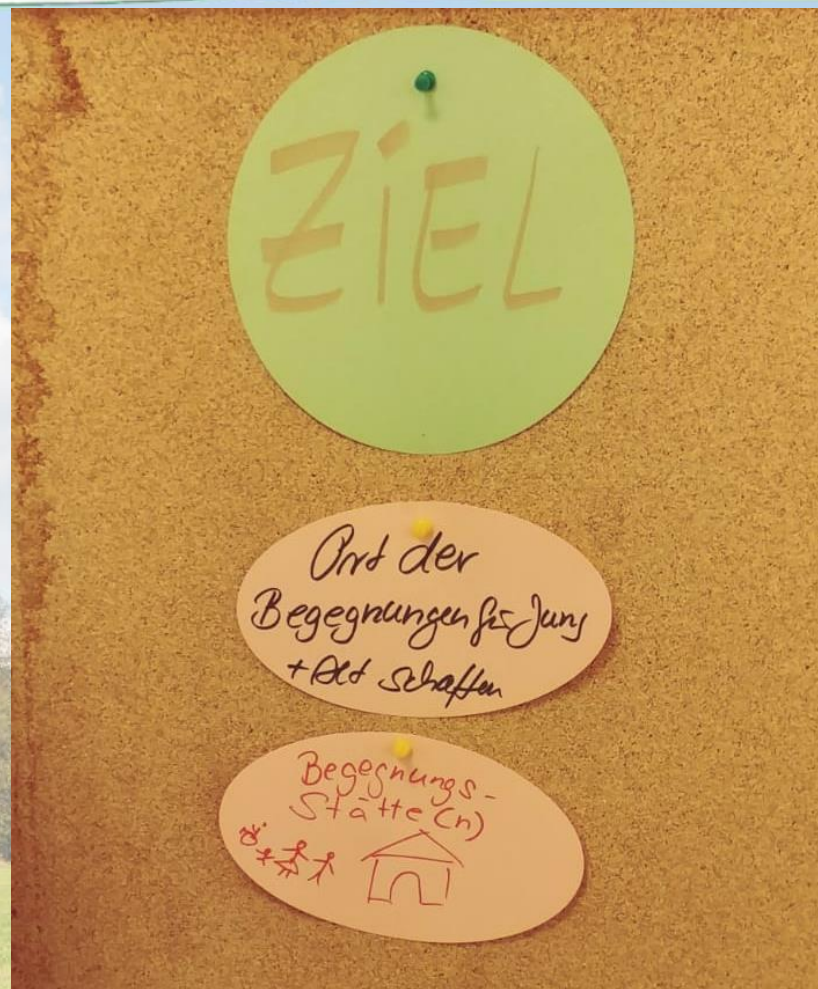 ZiEL
Ort der
Begegnungen für Jung
+ Alt schaffen
Begegnungs-
Stätte(n)